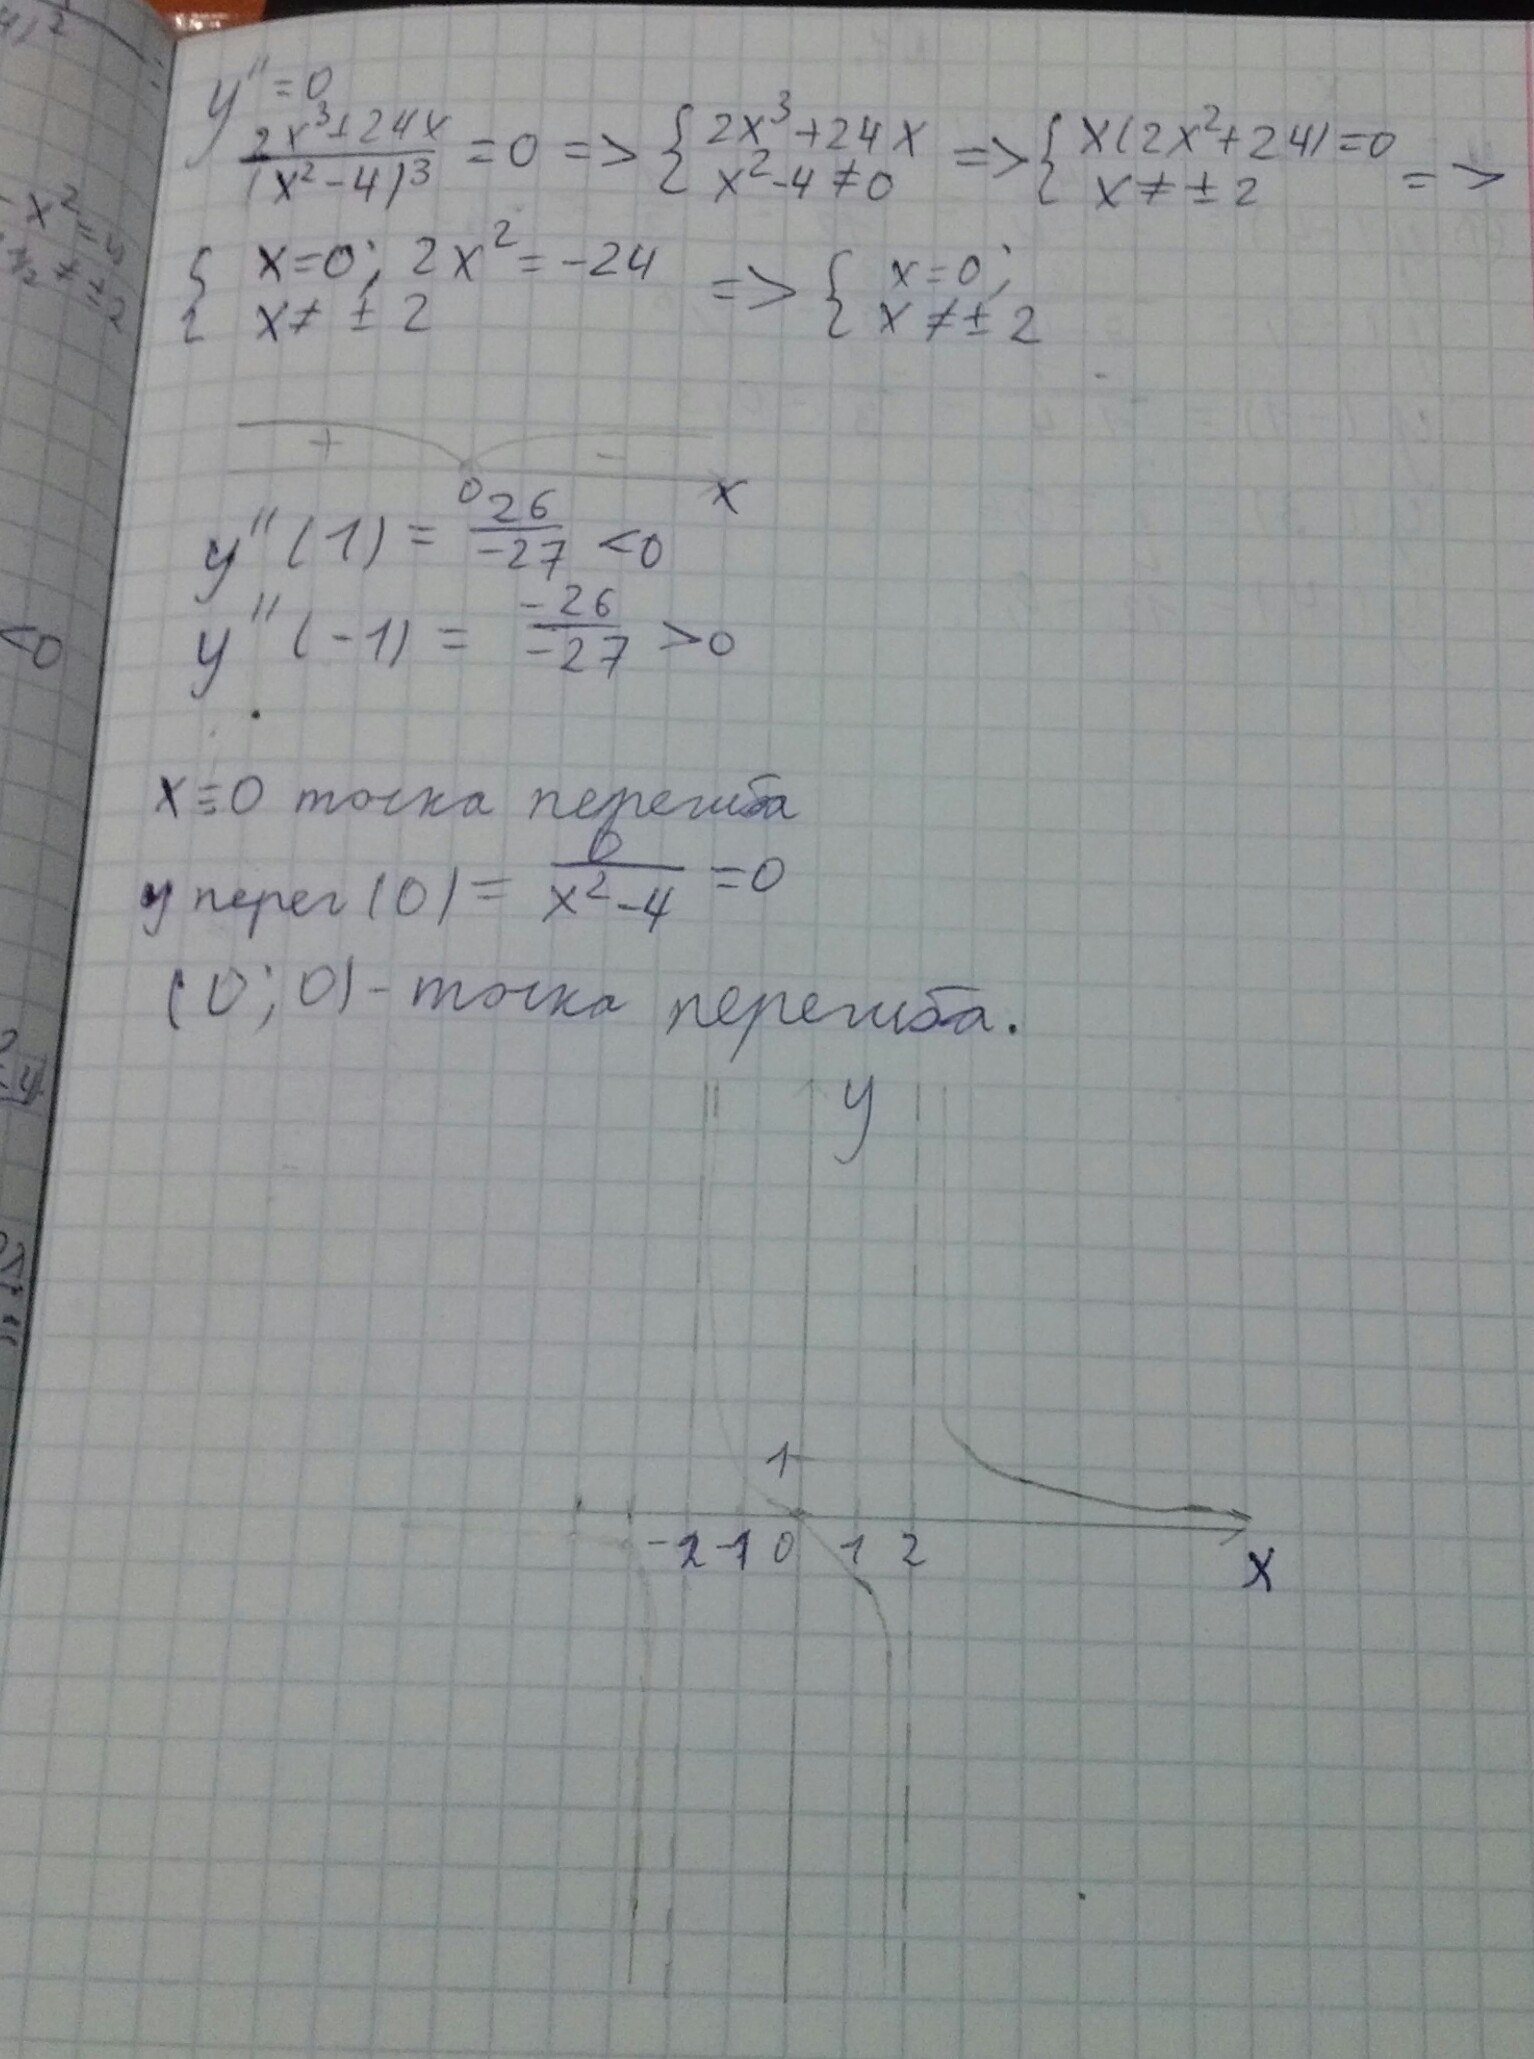 y'' = 0
(2x³+24x)/(x²-4)³ = 0 => { 2x³+24x => { x(2x²+24)=0 =>
{ x²-4≠0 { x≠±2
{ x=0; 2x²=-24 => { x=0;
{ x≠±2 { x≠±2
+ -
0 x
y''(1) = 26/-27 <0
y''(-1) = -26/-27 >0
x=0 точка перегиба
y перег(0) = 0/(x²-4) =0
(0;0) - точка перегиба.
y
1
-2 -1 0 1 2
x
<0